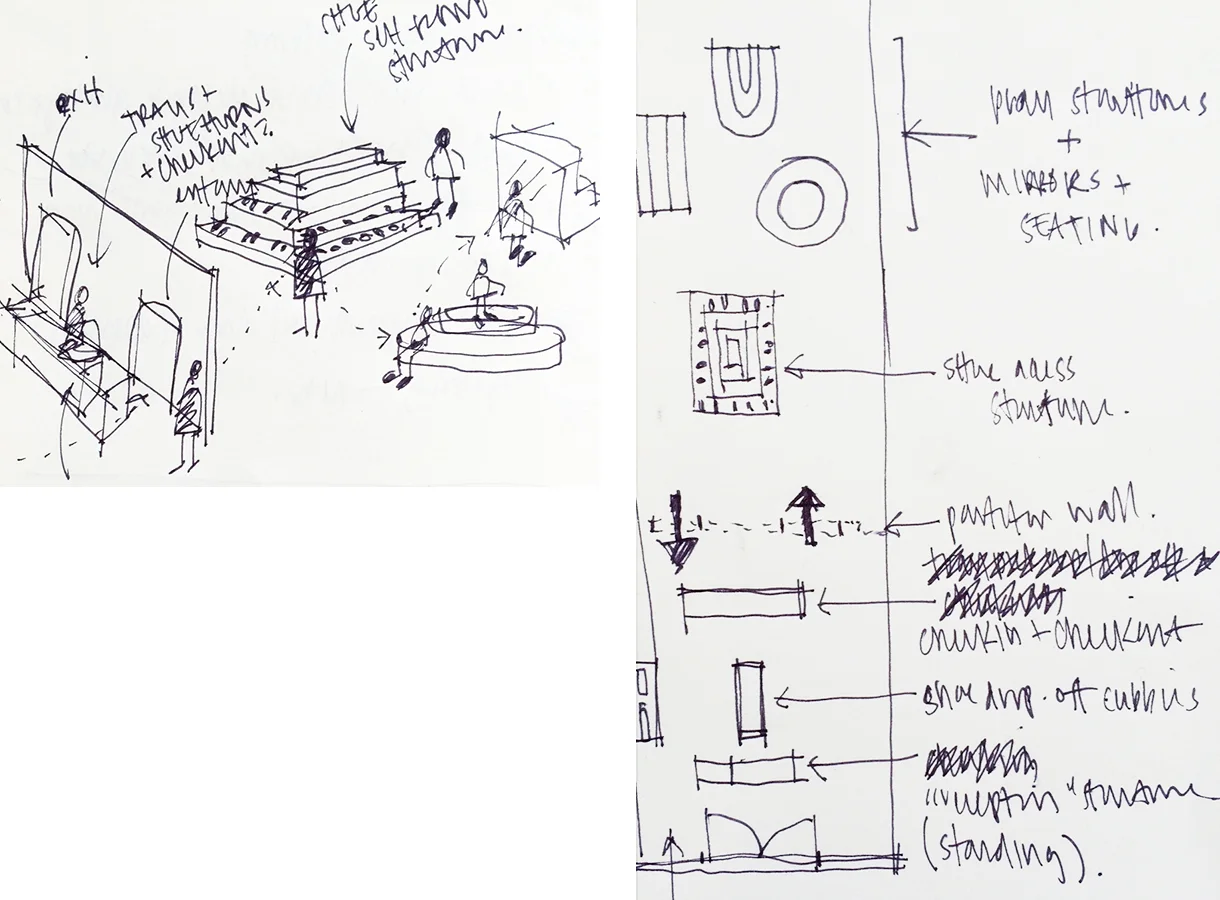 SHOE
structure.
exit
TRANS +
SHOE RETURNS
+ checkout?
entrance
play structures
+
MIRRORS +
SEATING.
shoe access
structure.
partition wall.
checkin + checkout
shoe drop-off cubbies
"reception" structure
(standing).